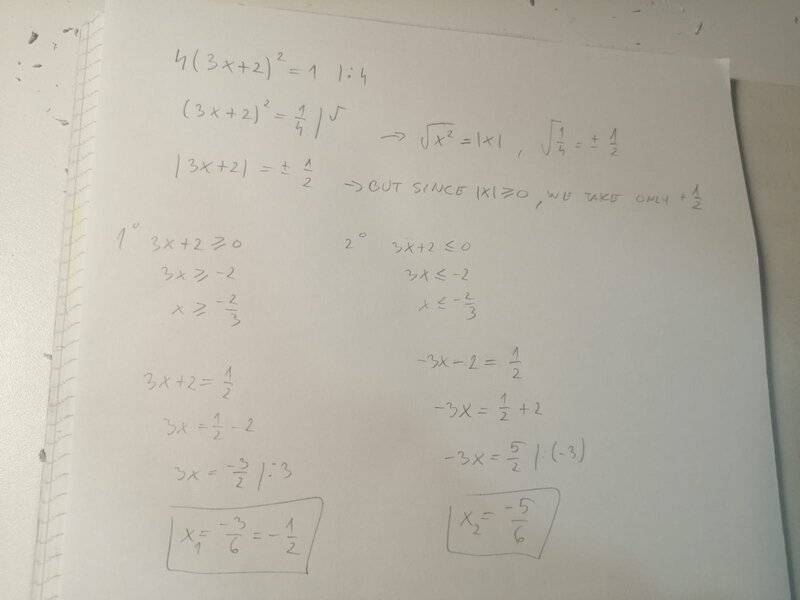 4(3x+2)² = 1 |:4
(3x+2)² = 1/4 |√
→ √x² = |x|, √1/4 = ± 1/2
|3x+2| = ± 1/2
→ BUT SINCE |x| ≥ 0, WE TAKE ONLY + 1/2
1° 3x+2 ≥ 0
3x ≥ -2
x ≥ -2/3
3x+2 = 1/2
3x = 1/2 - 2
3x = -3/2 |:3
x₁ = -3/6 = - 1/2
2° 3x+2 ≤ 0
3x ≤ -2
x ≤ -2/3
-3x-2 = 1/2
-3x = 1/2 + 2
-3x = 5/2 |:(-3)
x₂ = -5/6